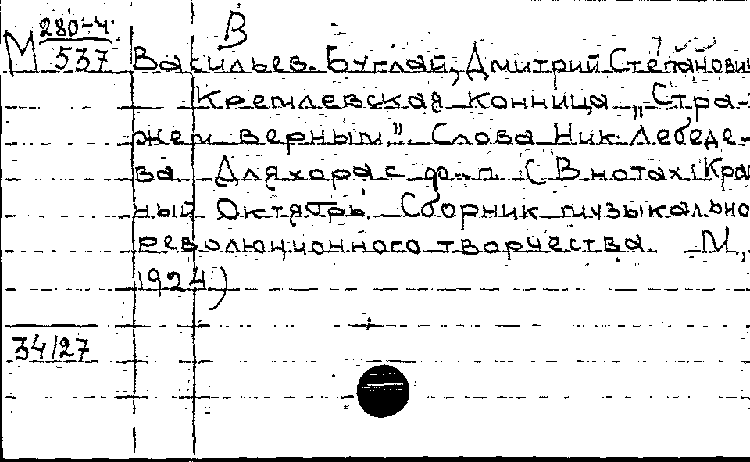 В
М 280-4
537
Васильев-Буглай, Дмитрий Степанович
Кремлевская конница „Стра-
жем верным". Слова Ник. Лебеде-
ва Для хора с ф.-п. (В нотах: Крас
ный Октябрь. Сборник музыкально
революционного творчества. М.,
1924)
34/27